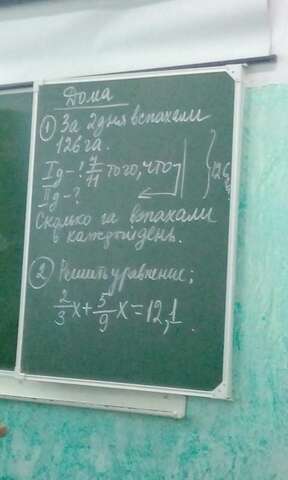 Дома
① За 2 дня вспахали
126 га.
I д - ? 7/11 того, что
II д - ?
} 126 га
Сколько га вспахали
в каждый день.
② Решить уравнение;
2/3 x + 5/9 x = 12,1